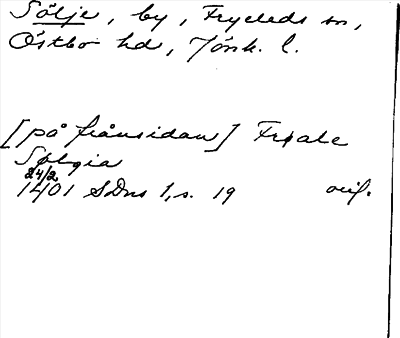 Sölje, by, Fryeleds sn,
Östbo hd, Jönk. l.
[på frånsidan] Fryale
Sølgia
24/2
1401 SDns 1, s. 19 orig.